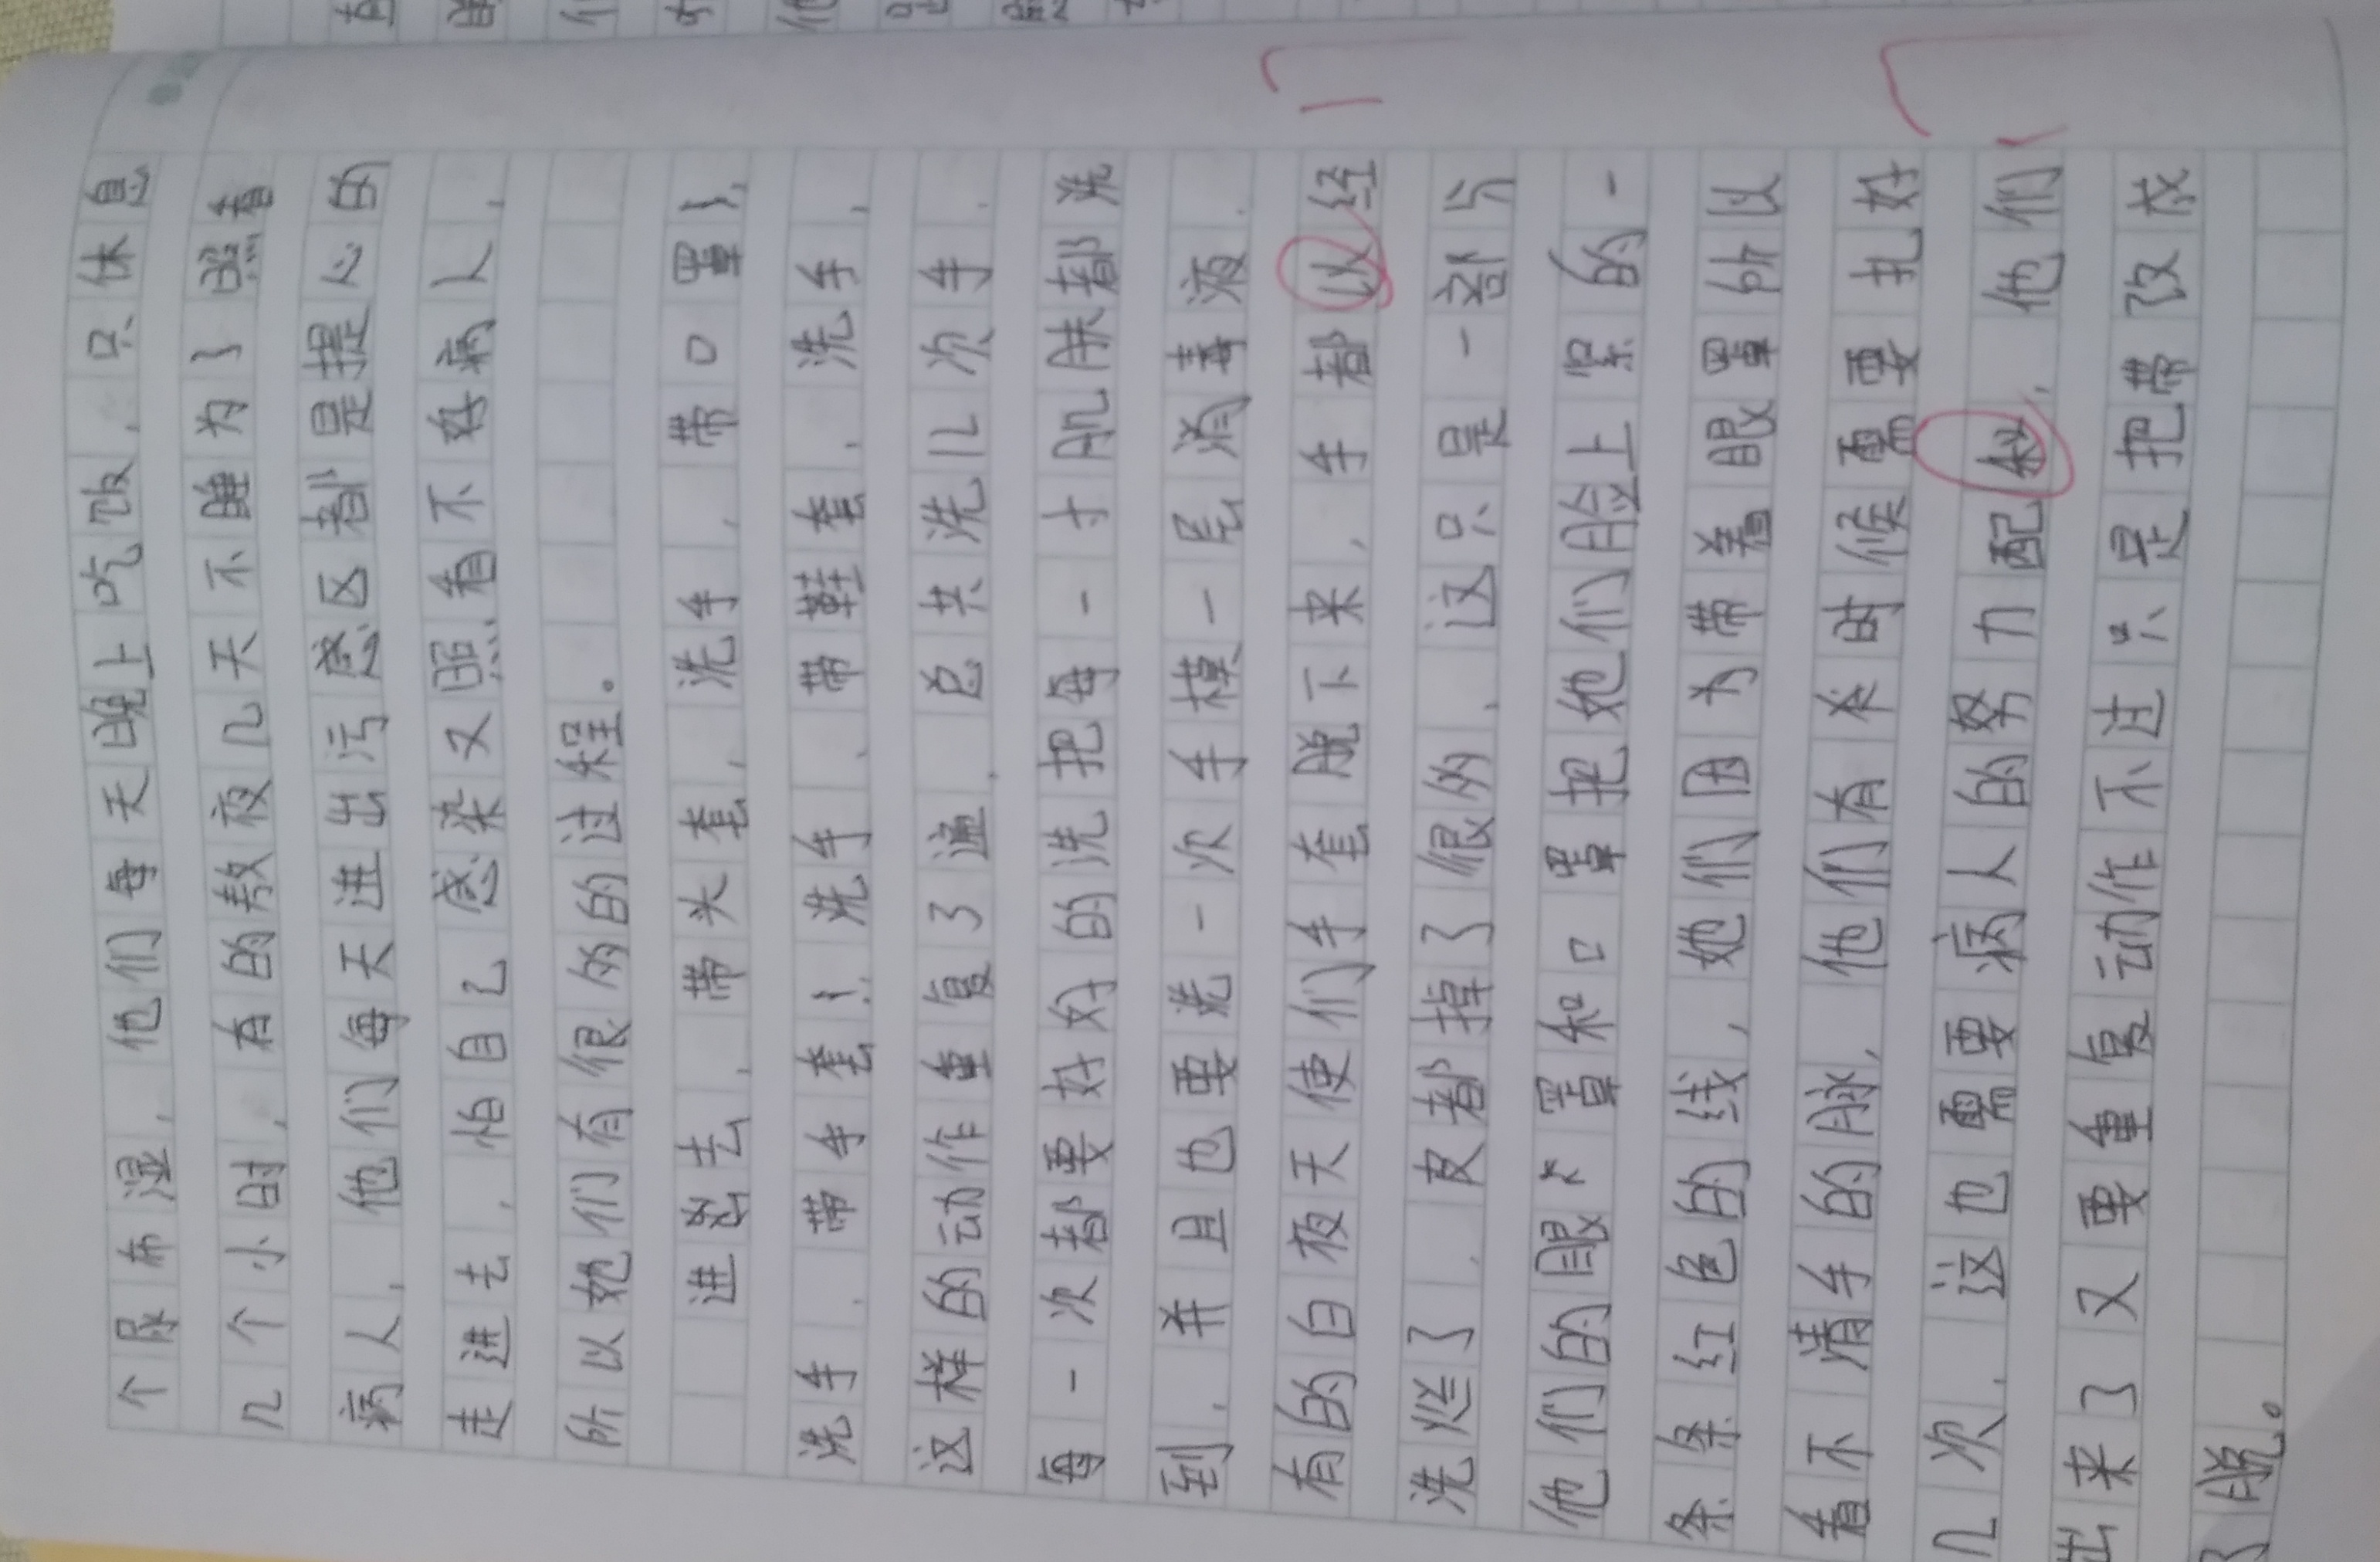 个尿布湿，他们每天晚上吃饭，只休息
几个小时，有的熬夜几天不睡为了照看
病人，他们每天进出污感区都是提心的
走进去，怕自己感染又照看不好病人，
所以她们有很多的过程。
进去，带头套，洗手，带口罩，
洗手，带手套，洗手，带鞋套，洗手，
这样的动作重复了遍，总共洗几次手，
每一次都要好好的洗把每一寸肌肤都洗
到，并且也要洗一次手摸一尾消毒液，
有的白夜天使们手套脱下来，手都以经
洗烂了，皮都掉了很多，这只是一部分
他们的眼罩和口罩把她们脸上深的一
条条红色的线，她们因为带着眼罩所以
看不清手的脉，他们有时候需要扎好
几次，这也需要病人的努力配，他们
出来了又要重复动作不过只是把带改成
又脱。